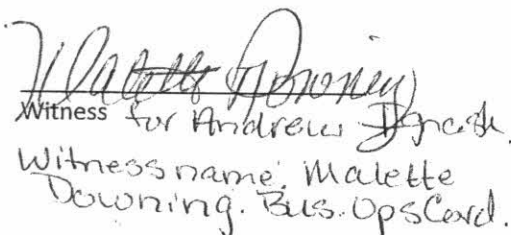 Malette Downing
Witness for Andrew Ignash.
Witness name: Malette
Downing. Bus. Ops Cord.